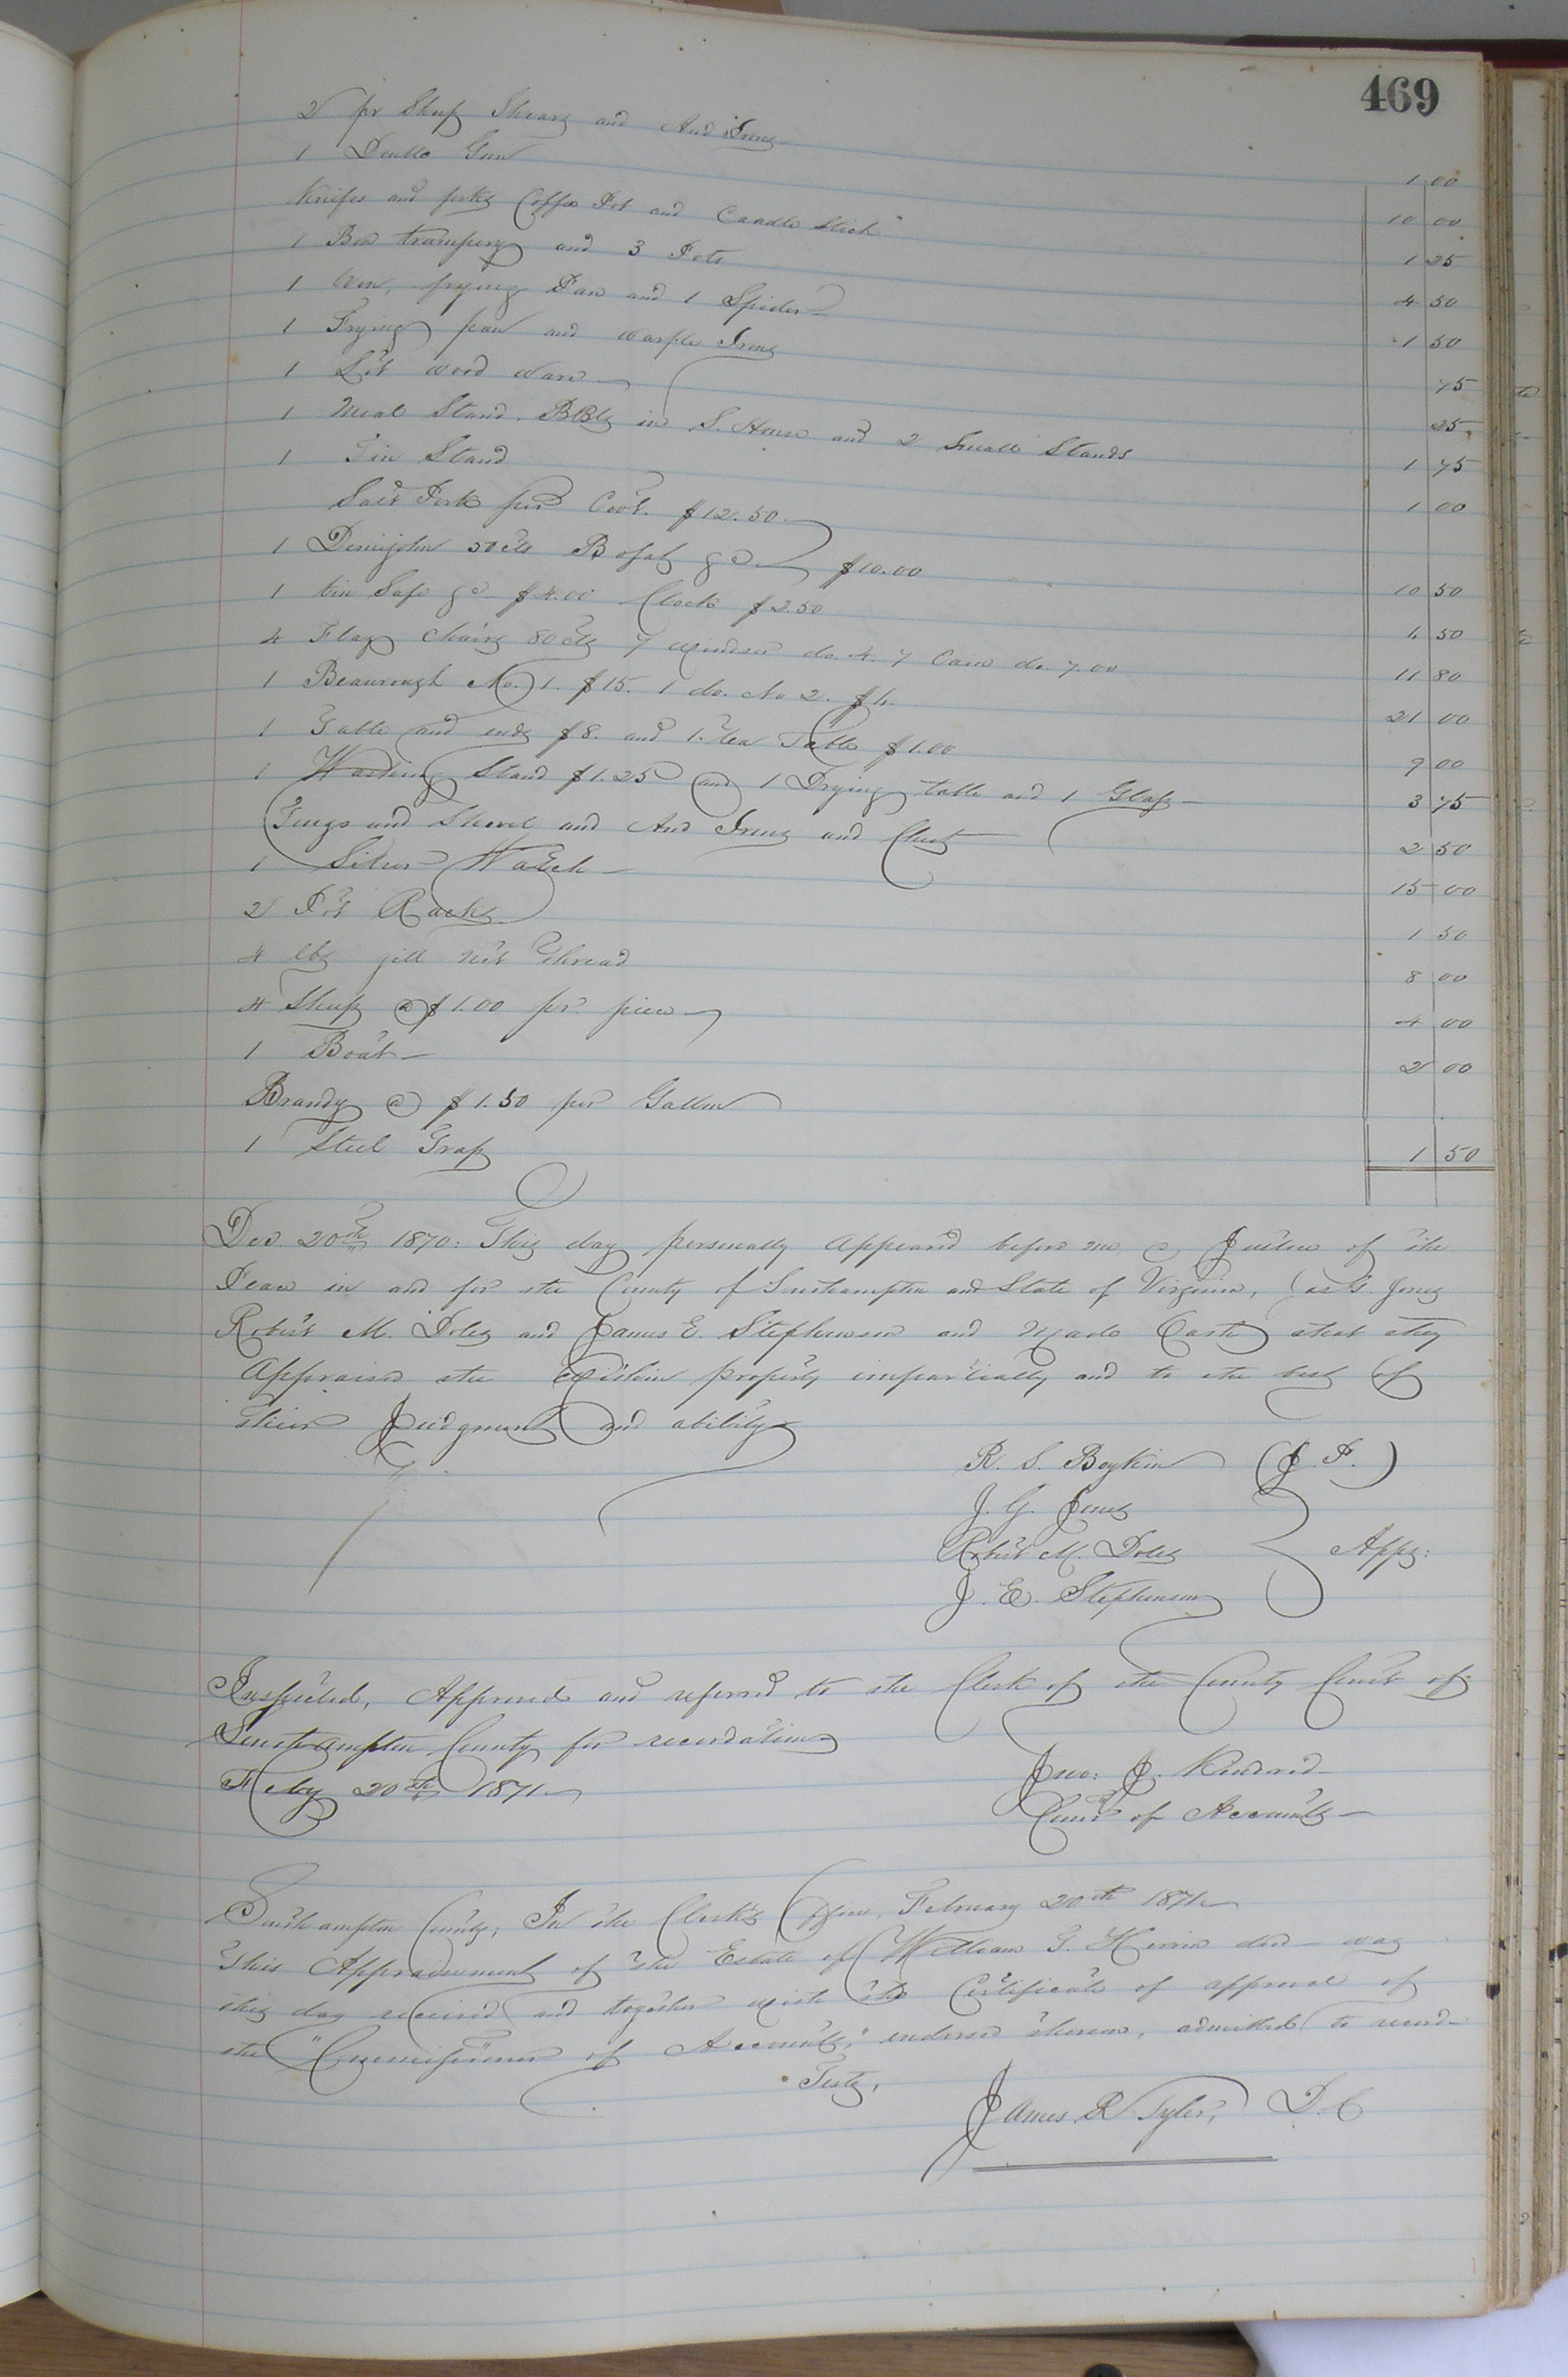 469
2 pr Sheep Shears and And Irons 1 00
1 Double Gun 10 00
Knifes and forks Coffee Pot and Candle Stick 1 25
1 Box trumpery and 3 Pots 4 50
1 Oven, frying Pan and 1 Spider 1 50
1 Frying pan and waffle Irons 75
1 Lot wood ware 25
1 Meal Stand. BBls in S. House and 2 Small Stands 1 75
1 Tin Stand 1 00
Salt Pork per Cwt. $12.50
1 Demijohn 50 cts $10.00 10 50
1 tin Safe gd $4.00 Clock $2.50 6 50
4 Flag chairs 80 cts 7 windsor do. 4. 7 Cain do. 7.00 11 80
1 Beaurough No. 1. $15. 1 do. No 2. $6. 21 00
1 Table and ends $8. and 1 tea Table $1.00 9 00
1 Washing Stand $1.25 and 1 Drsing table and 1 Glass 3 75
Tongs and Shovel and And Irons and Chest 2 50
1 Silver Watch 15 00
2 Pot Racks 1 50
4 lbs gill net Thread 8 00
4 Sheep @ $1.00 pr piece 4 00
1 Boat 2 00
Brandy @ $1.50 per Gallon
1 Steel Trap 1 50
Dec 20th 1870: This day personally appeared before me a Justice of the
Peace in and for the County of Southampton and State of Virginia, Jas G. Jones
Robert M. Doles and James E. Stephenson and made Oath that they
Appraised the within property impartially and to the best of
their Judgment and ability
R. S. Boykin (J. P.)
J. G. Jones
Robert M. Doles Apps:
J. E. Stephenson
Inspected, Approved and referred to the Clerk of the County Court of
Southampton County for recordation
Feby 20th 1871
Jno: J. Kindred
Comr of Accounts
Southampton County, In the Clerk's Office, February 20th 1871
This Appraisement of the Estate of William T. Herrin decd was
this day received and together with the Certificate of approval of
the "Commissioner of Accounts," endorsed thereon, admitted to record
Teste,
James R Tyler, D. C